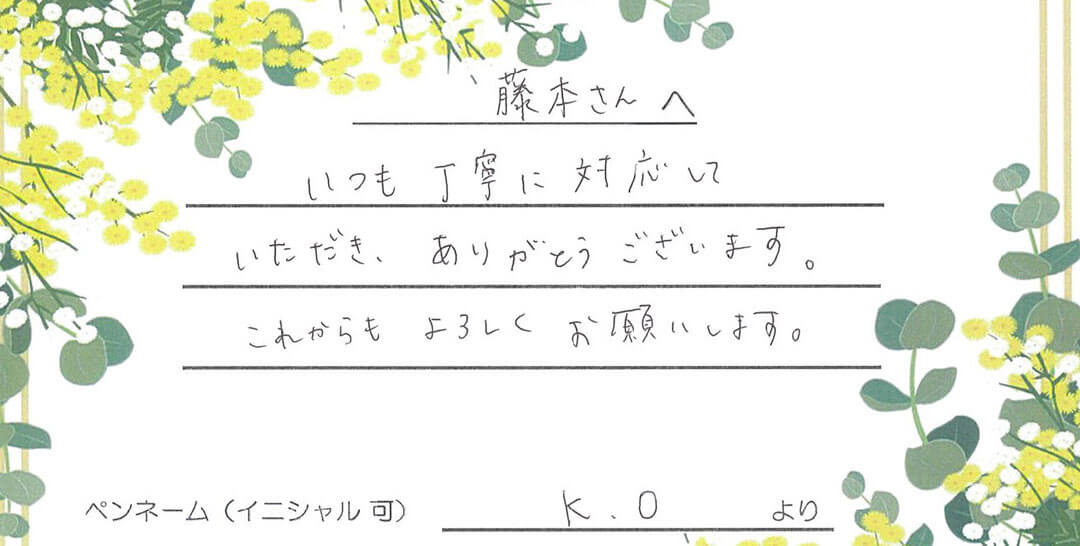 藤本さんへ
いつも丁寧に対応して
いただき、ありがとうございます。
これからもよろしくお願いします。
ペンネーム（イニシャル可） K.O より